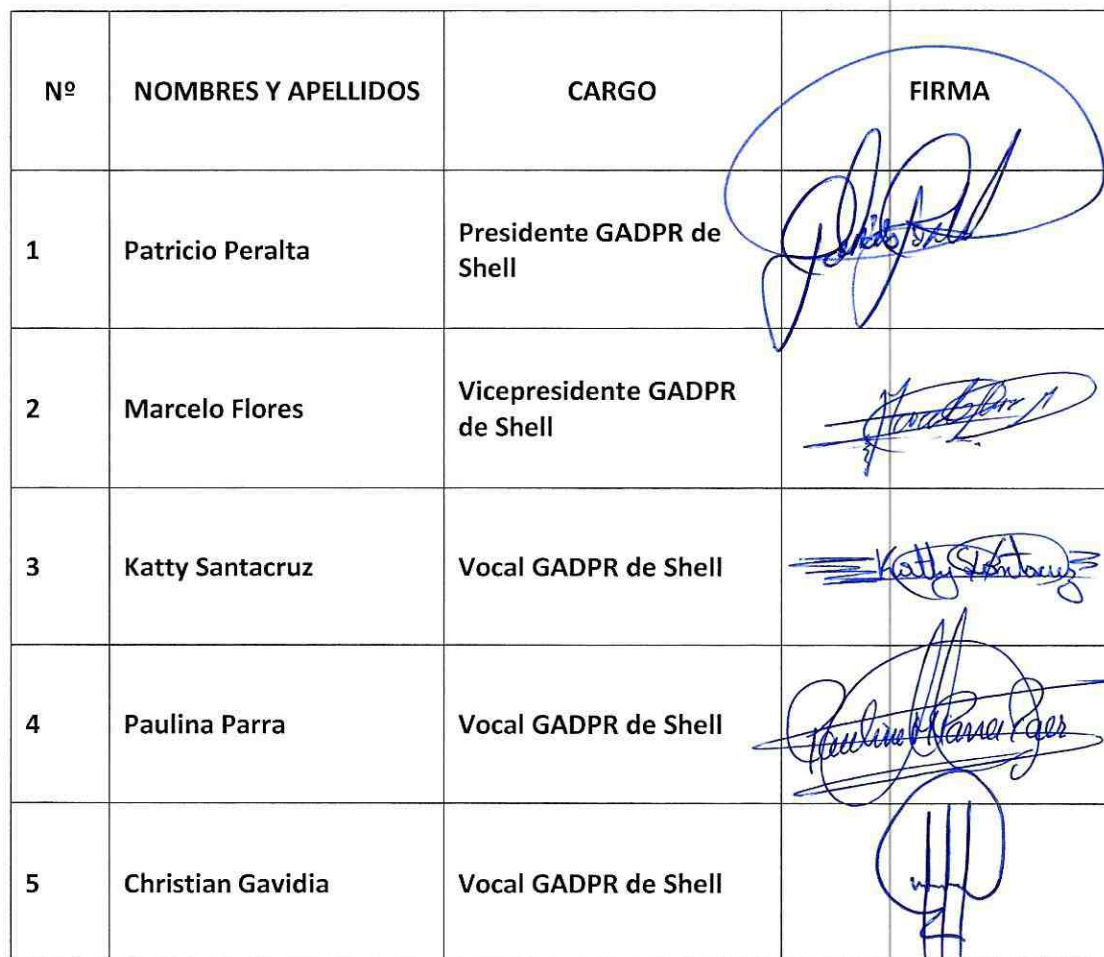 Nº NOMBRES Y APELLIDOS CARGO FIRMA
1 Patricio Peralta Presidente GADPR de
Shell
2 Marcelo Flores Vicepresidente GADPR
de Shell
3 Katty Santacruz Vocal GADPR de Shell Katty Santacruz
4 Paulina Parra Vocal GADPR de Shell
5 Christian Gavidia Vocal GADPR de Shell